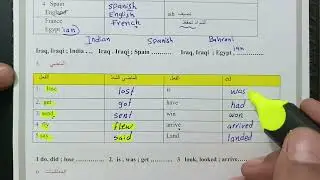 4 Spain Spanish
England English
France French
Egypt ian
Indian Spanish Bahrani
Iraq, Iraqi ; Ind ............ Iraq . Iraqi ; Spain ............ Iraq, Iraqi ; Egypt ian
الفعل الفعل ed
1. lose lost is was
2. get got have had
3. send sent win won
4. fly flew arrive arrived
5. say said Land landed
1 do, did ; lose ............ 2. is , was ; get ............ 3 look, looked ; arrive............